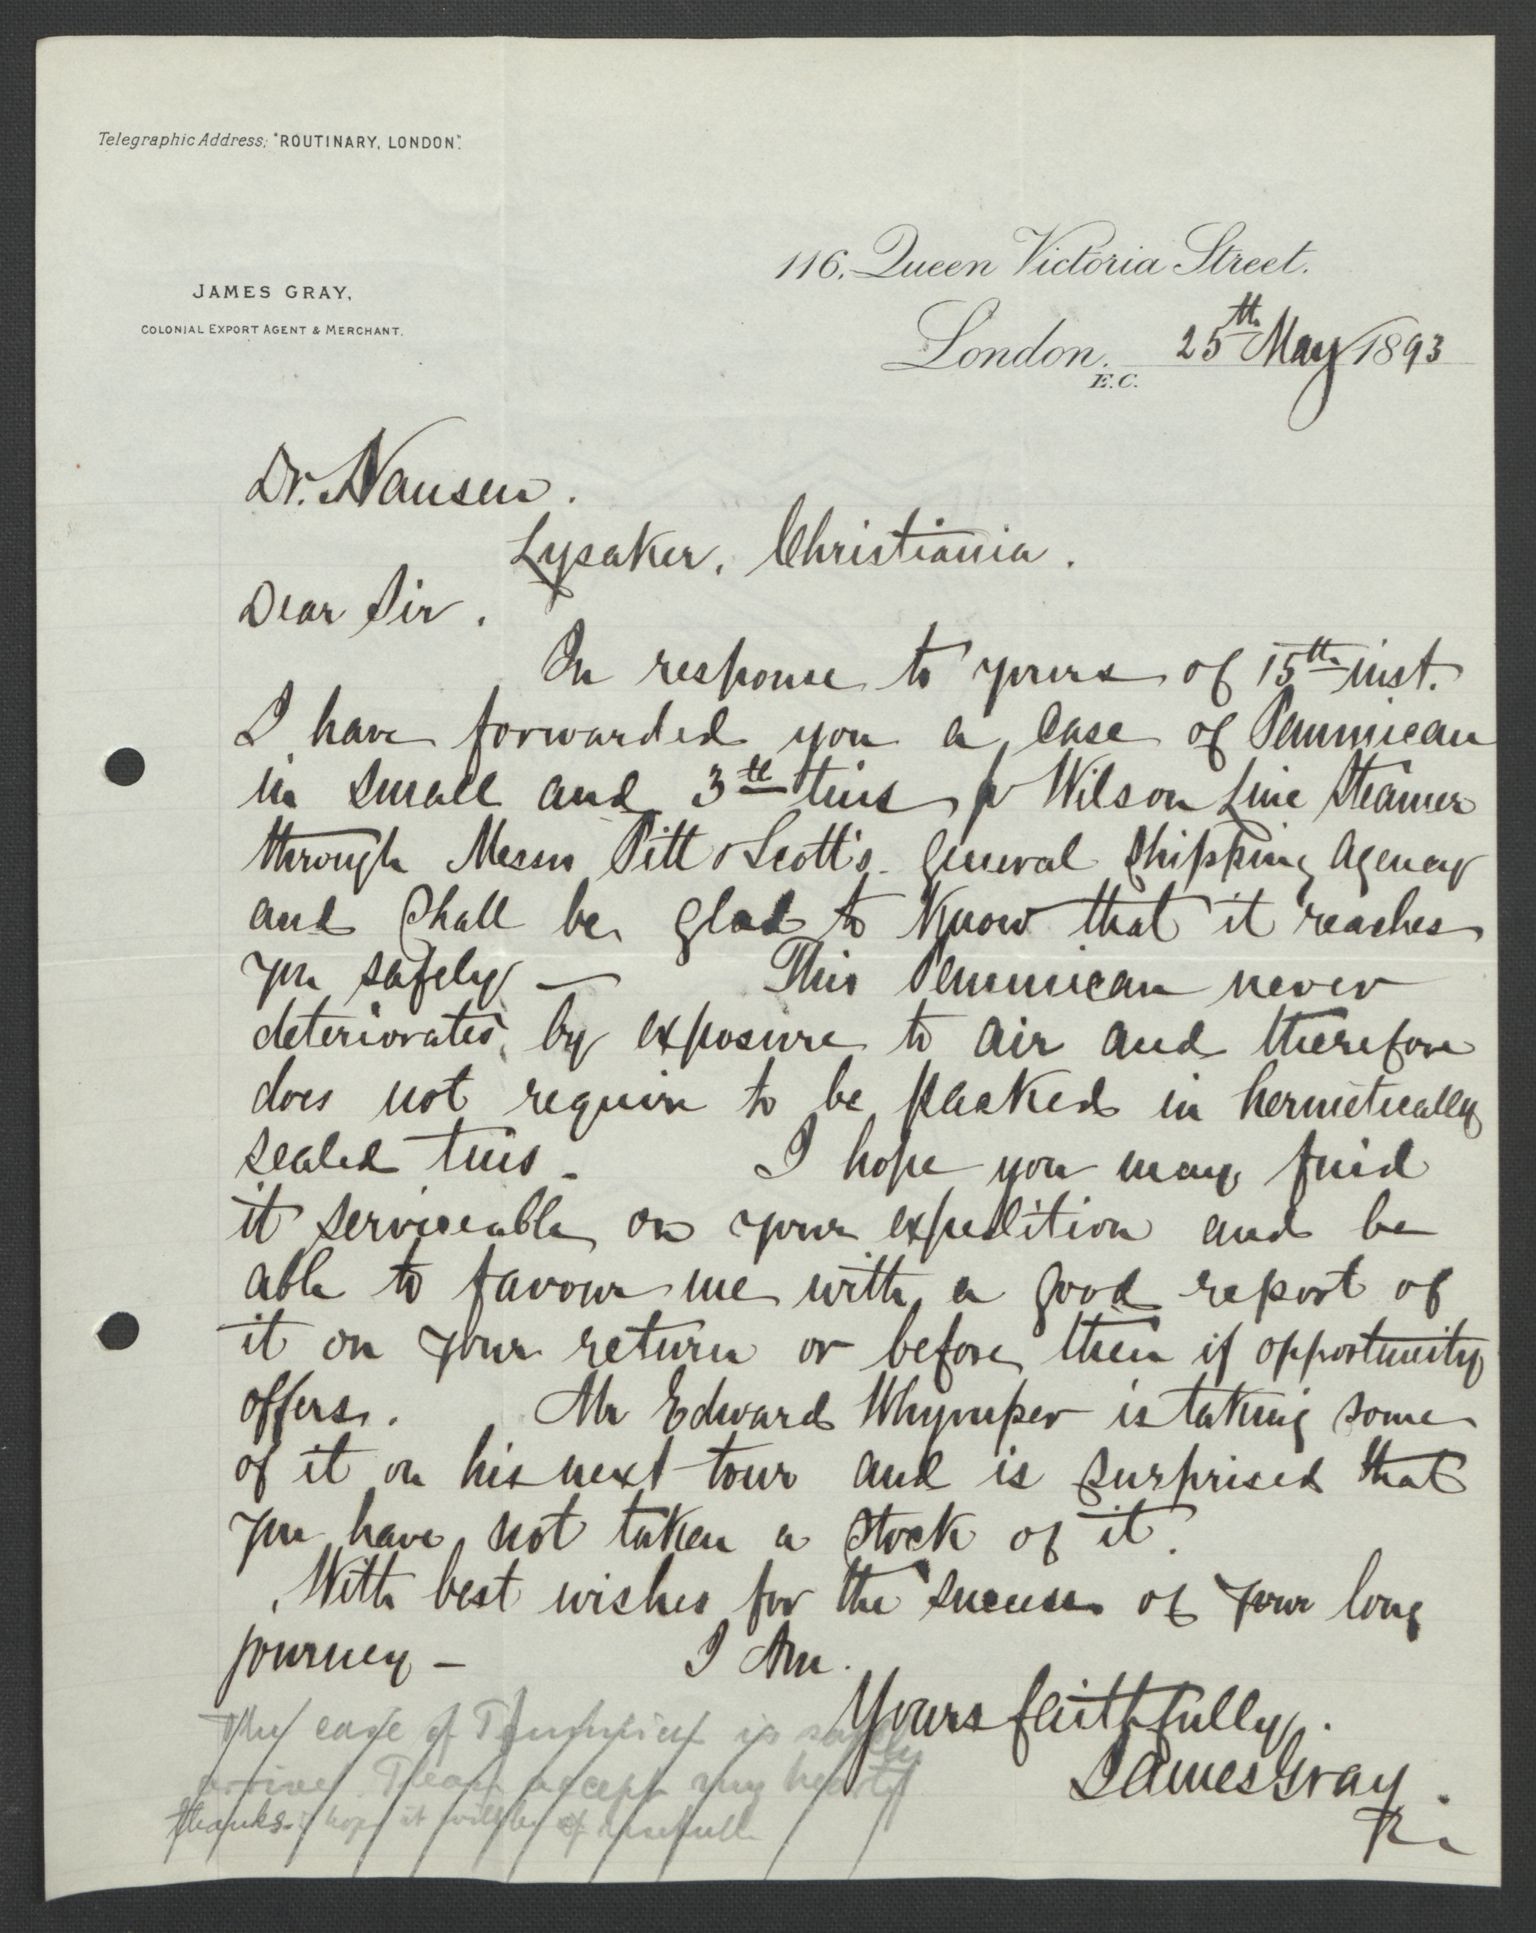 Telegraphic Address; "ROUTINARY, LONDON".
116, Queen Victoria Street.
JAMES GRAY,
COLONIAL EXPORT AGENT & MERCHANT.
London, 25th May 1893
E.C.
Dr. Nansen.
Lysaker, Christiania.
Dear Sir.
In response to yours of 15th inst.
I have forwarded you a case of Pemmican
in small and 3 lb tins p Wilson Line Steamer
through Messrs Pitt & Scott's General Shipping Agency
and shall be glad to know that it reaches
you safely — This Pemmican never
deteriorates by exposure to air and therefore
does not require to be packed in hermetically
sealed tins - I hope you may find
it serviceable on your expedition and be
able to favour me with a good report of
it on your return or before then if opportunity
offers. Mr Edward Whymper is taking some
of it on his next tour and is surprised that
you have not taken a stock of it.
With best wishes for the success of your long
journey - I Am.
Yours faithfully.
James Gray.
The case of is safely
arrived. Please accept my hearty
thanks. I hope it will be